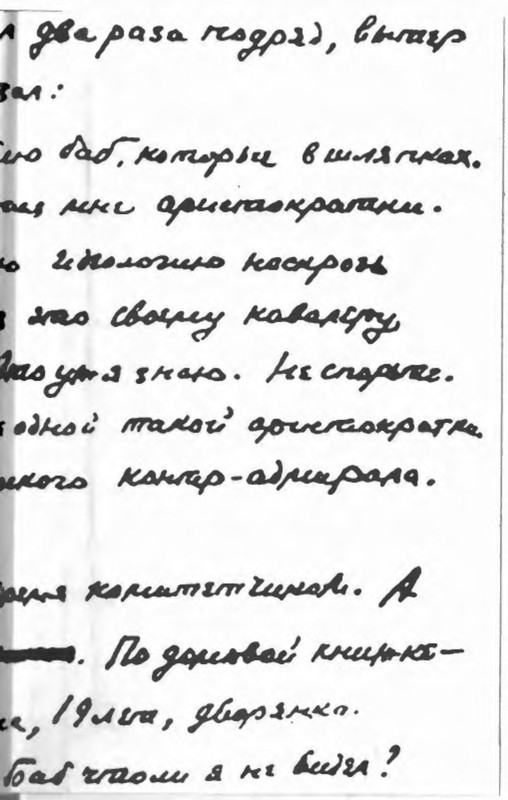 два раза подряд, вытер
зал:
лю баб, которые в шляпках.
мне аристократки.
ю идеологию насквозь
это своему кавалеру,
Это уж я знаю. Не спорьте.
одной такой аристократки
ского контр-адмирала.
время комитетчиком. А
. По домовой книжке —
на, 19 лет, дворянка.
баб что ли я не видел?